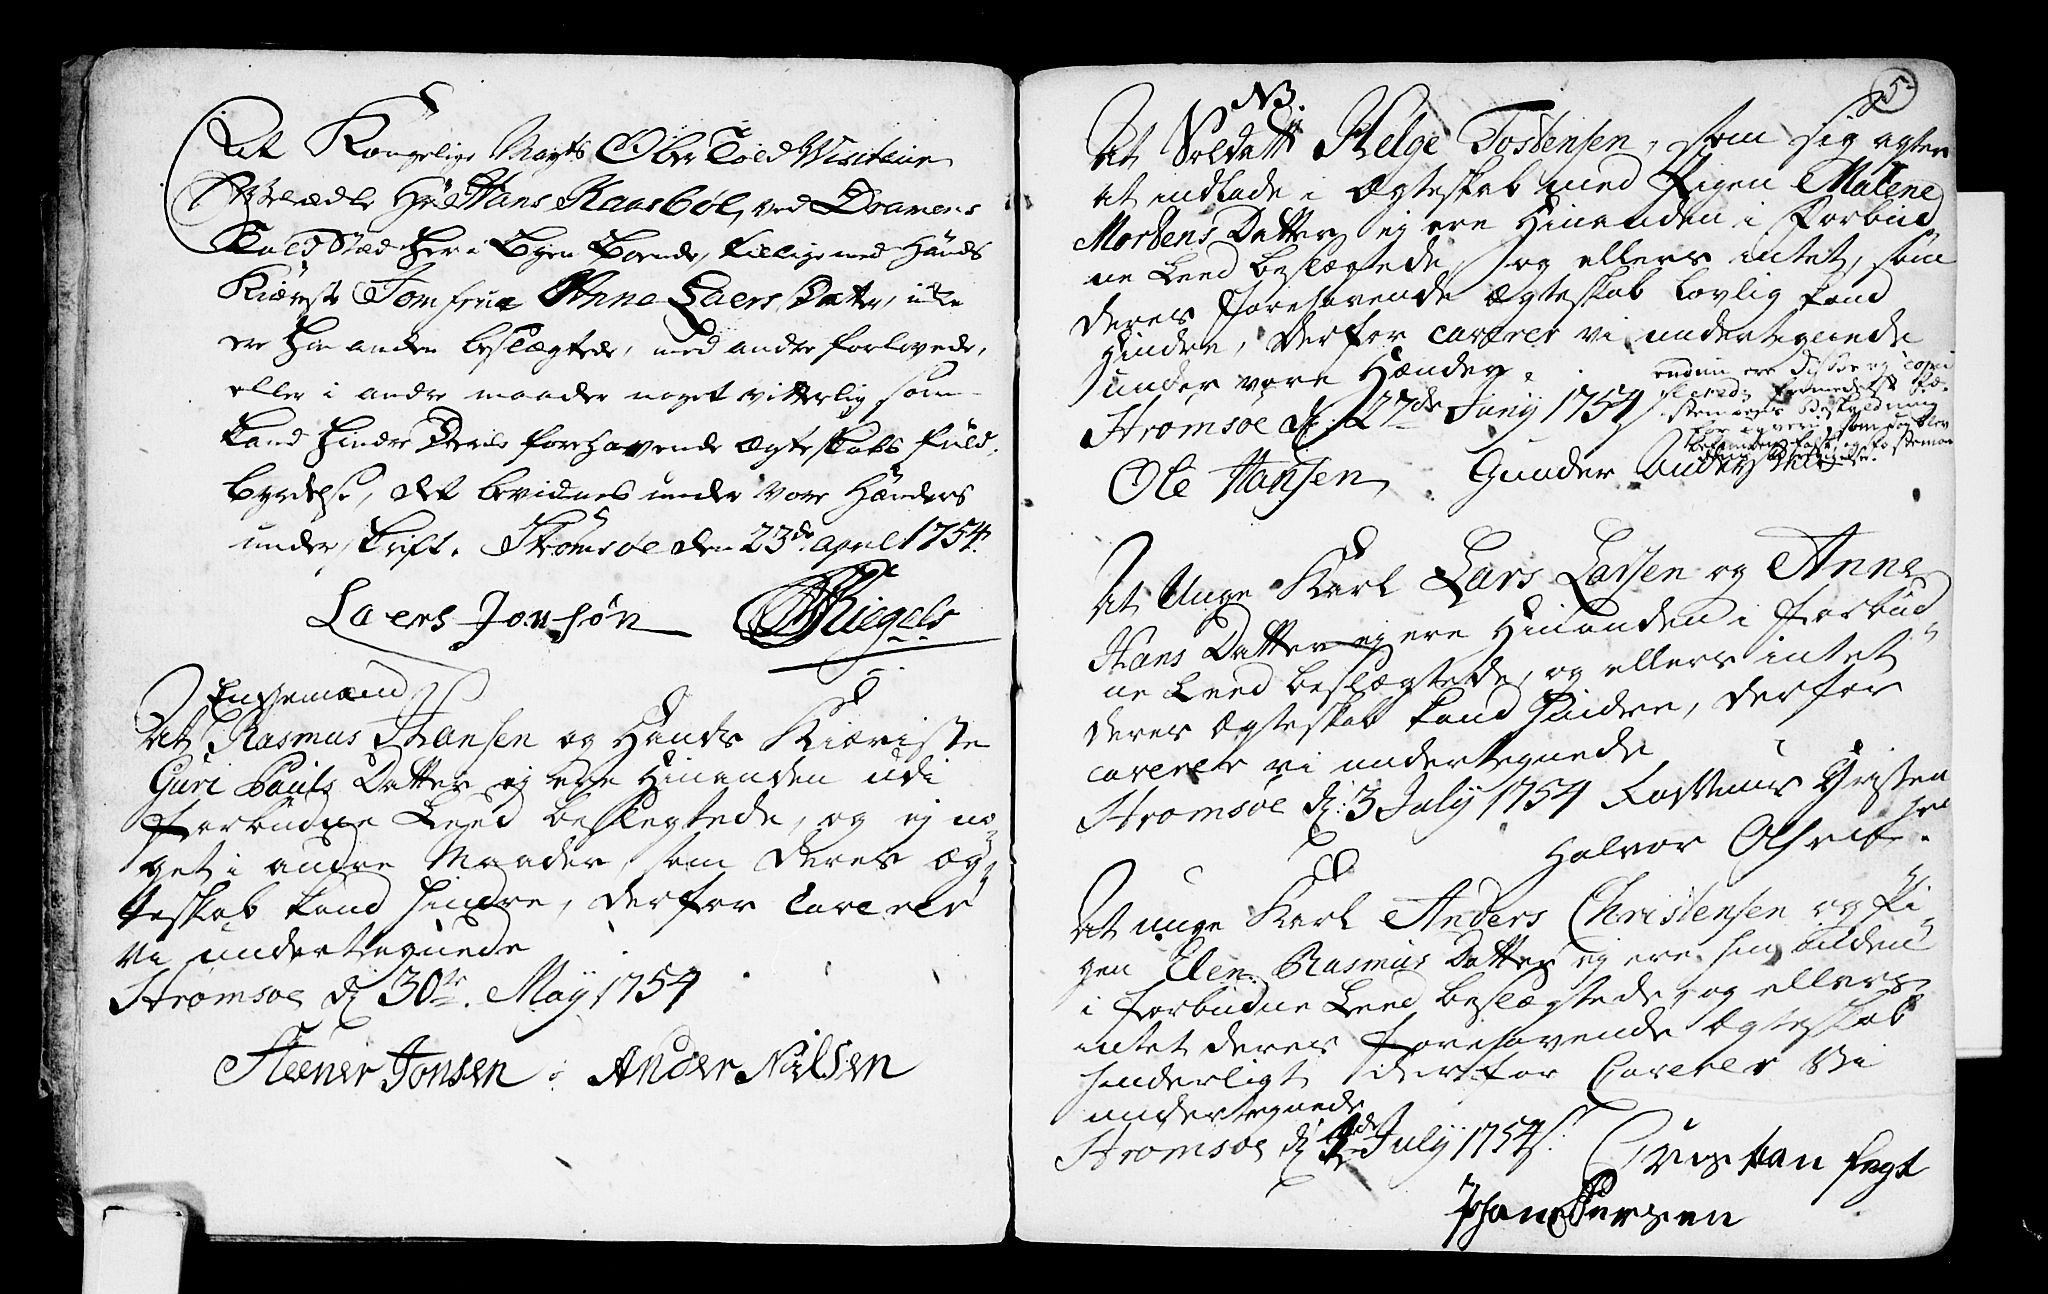 At Kongelige Mayts Ober Told Visiteur
Velædle Hr Hans Kaasbøl, ved Dramens
Told Stæd her i Byen boende, tillige med Hands
Kiærste Jomfrue Anna Laers Datter, icke
ere hin anden beslægtede, med andre forlovede,
eller i andre maader noget vitterlig som
kand hindre Deris forehavende Ægteskabs fuld,
byrdelse, det bevidnes under vore Hænders
under skrift. Strømsøe den 23de april 1754.
Laers Jonsøn Riegels
Enkemand
At Rasmus Hansen og Hands Kiæriste
Guri Pouls Datter ej ere Hinanden udi
forbudne Leed beslegtede, og ej no,,
get i andre Maader, som deres æg,,
teskab kand hindre, derfor Caverer
vi undertegnede
Stromsoe dj 30te May 1754
Steener Jonsen. Ander Nilsen
5
NB.
At Soldatt Helge Tostensen, som sig agter
at indlade i Ægteskab med Pigen Malene
Mortens Datter ej ere Hinanden i forbud,,
ne Leed beslægtede, og ellers intet, som
deres forehavende Ægteskab lovlig kand
hindre, derfor caverer vi undertegnede
under vore Hænder.
Stromsoe dj: 27de Junij 1754
endnu ere disse ej copu
lerede formedelst
Beskyldning
som dog blev
falsk, og
Ole Hansen Gunder Anders
At Unge Karl Lars Larsen og Anne
Hans Datter ej ere Hinanden i forbud,,
ne Leed beslægtede, og ellers intet
deres Ægteskab kand hindre, derfor
caverer vi undertegnede
Stromsoe dj: 3 July 1754 Rasmus Christen
sen
Halvor Olsen
At unge Karl Anders Christensen og Pi,,
gen Elen Rasmus Datter ej ere hin anden
i forbudne Leed beslægtede, og ellers
intet deres forehavende Ægteskab
hinderligt derfor Caverer Vi
undertegnede
Stromsoe dj July 1754.
Christian fogt
Johan Persen